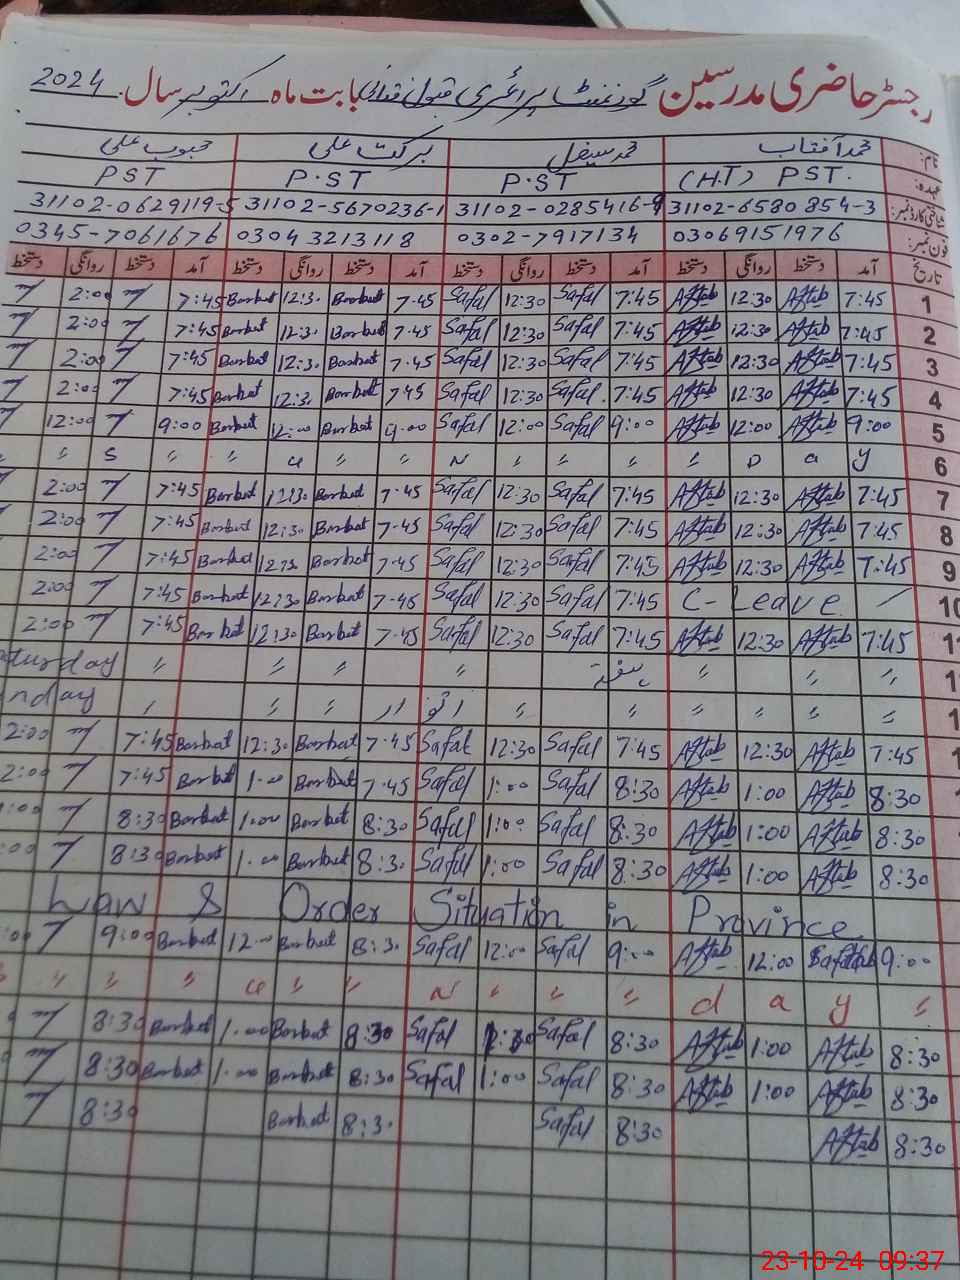 رجسٹر حاضری مدرسین گورنمنٹ پرائمری بابت ماہ اکتوبر سال 2024
نام: محمد آفتاب محمد سیفل برکت علی محبوب علی
عہدہ: (H.T) PST. P.ST P.ST PST
شناختی کارڈ نمبر: 31102-6580854-3 31102-0285416-9 31102-5670236-1 31102-0629119-5
فون نمبر: 03069151976 0302-7917134 0304 3213118 0345-7061676
تاریخ آمد دستخط روانگی دستخط آمد دستخط روانگی دستخط آمد دستخط روانگی دستخط آمد دستخط روانگی دستخط
1 7:45 Aftab 12:30 Aftab 7:45 Safal 12:30 Safal 7.45 Barkat 12:3. Barkat 7:45 2:00
2 7:45 Aftab 12:30 Aftab 7:45 Safal 12:30 Safal 7.45 Barkat 12:3. Barkat 7:45 2:00
3 7:45 Aftab 12:30 Aftab 7:45 Safal 12:30 Safal 7.45 Barkat 12:3. Barkat 7:45 2:00
4 7:45 Aftab 12:30 Aftab 7:45 Safal 12:30 Safal 7.45 Barkat 12:3. Barkat 7:45 2:00
5 9:00 Aftab 12:00 Aftab 9:00 Safal 12:00 Safal 9.00 Barkat 12:00 Barkat 9:00 12:00
6 S " " " u " " N " " " " D a y
7 7:45 Aftab 12:30 Aftab 7:45 Safal 12:30 Safal 7.45 Barkat 12:30 Barkat 7:45 2:00
8 7:45 Aftab 12:30 Aftab 7:45 Safal 12:30 Safal 7.45 Barkat 12:3. Barkat 7:45 2:00
9 7:45 Aftab 12:30 Aftab 7:45 Safal 12:30 Safal 7.45 Barkat 12:3. Barkat 7:45 2:00
10 C-Leave 7:45 Safal 12:30 Safal 7.45 Barkat 12:30 Barkat 7:45 2:00
1 7:45 Aftab 12:30 Aftab 7:45 Safal 12:30 Safal 7.45 Barkat 12:30 Barkat 7:45 2:00
1 " " " ہفتہ " " " " turday
1 " " " " " اتوار " " nday
1 7:45 Aftab 12:30 Aftab 7:45 Safal 12:30 Safal 7.45 Barkat 12:3. Barkat 7:45 2:00
8:30 Aftab 1:00 Aftab 8:30 Safal 1:00 Safal 7.45 Barkat 1.00 Barkat 7:45 2:00
8:30 Aftab 1:00 Aftab 8:30 Safal 1:00 Safal 8:30 Barkat 1:00 Barkat 8:30 1:00
8:30 Aftab 1:00 Aftab 8:30 Safal 1:00 Safal 8:3. Barkat 1.00 Barkat 8:30 :00
Law & Order Situation in Province
9:00 12:00 Aftab 9:00 Safal 12:00 Safal 8:3. Barkat 12.00 Barkat 9:00 :00
" " " u " " N " " " d a y "
8:30 Aftab 1:00 Aftab 8:30 Safal Safal 8:30 Barkat 1.00 Barkat 8:30
8:30 Aftab 1:00 Aftab 8:30 Safal 1:00 Safal 8:30 Barkat 1.00 Barkat 8:30
8:30 Aftab 8:30 Safal 8:3. Barkat 8:30
23-10-24 09:37